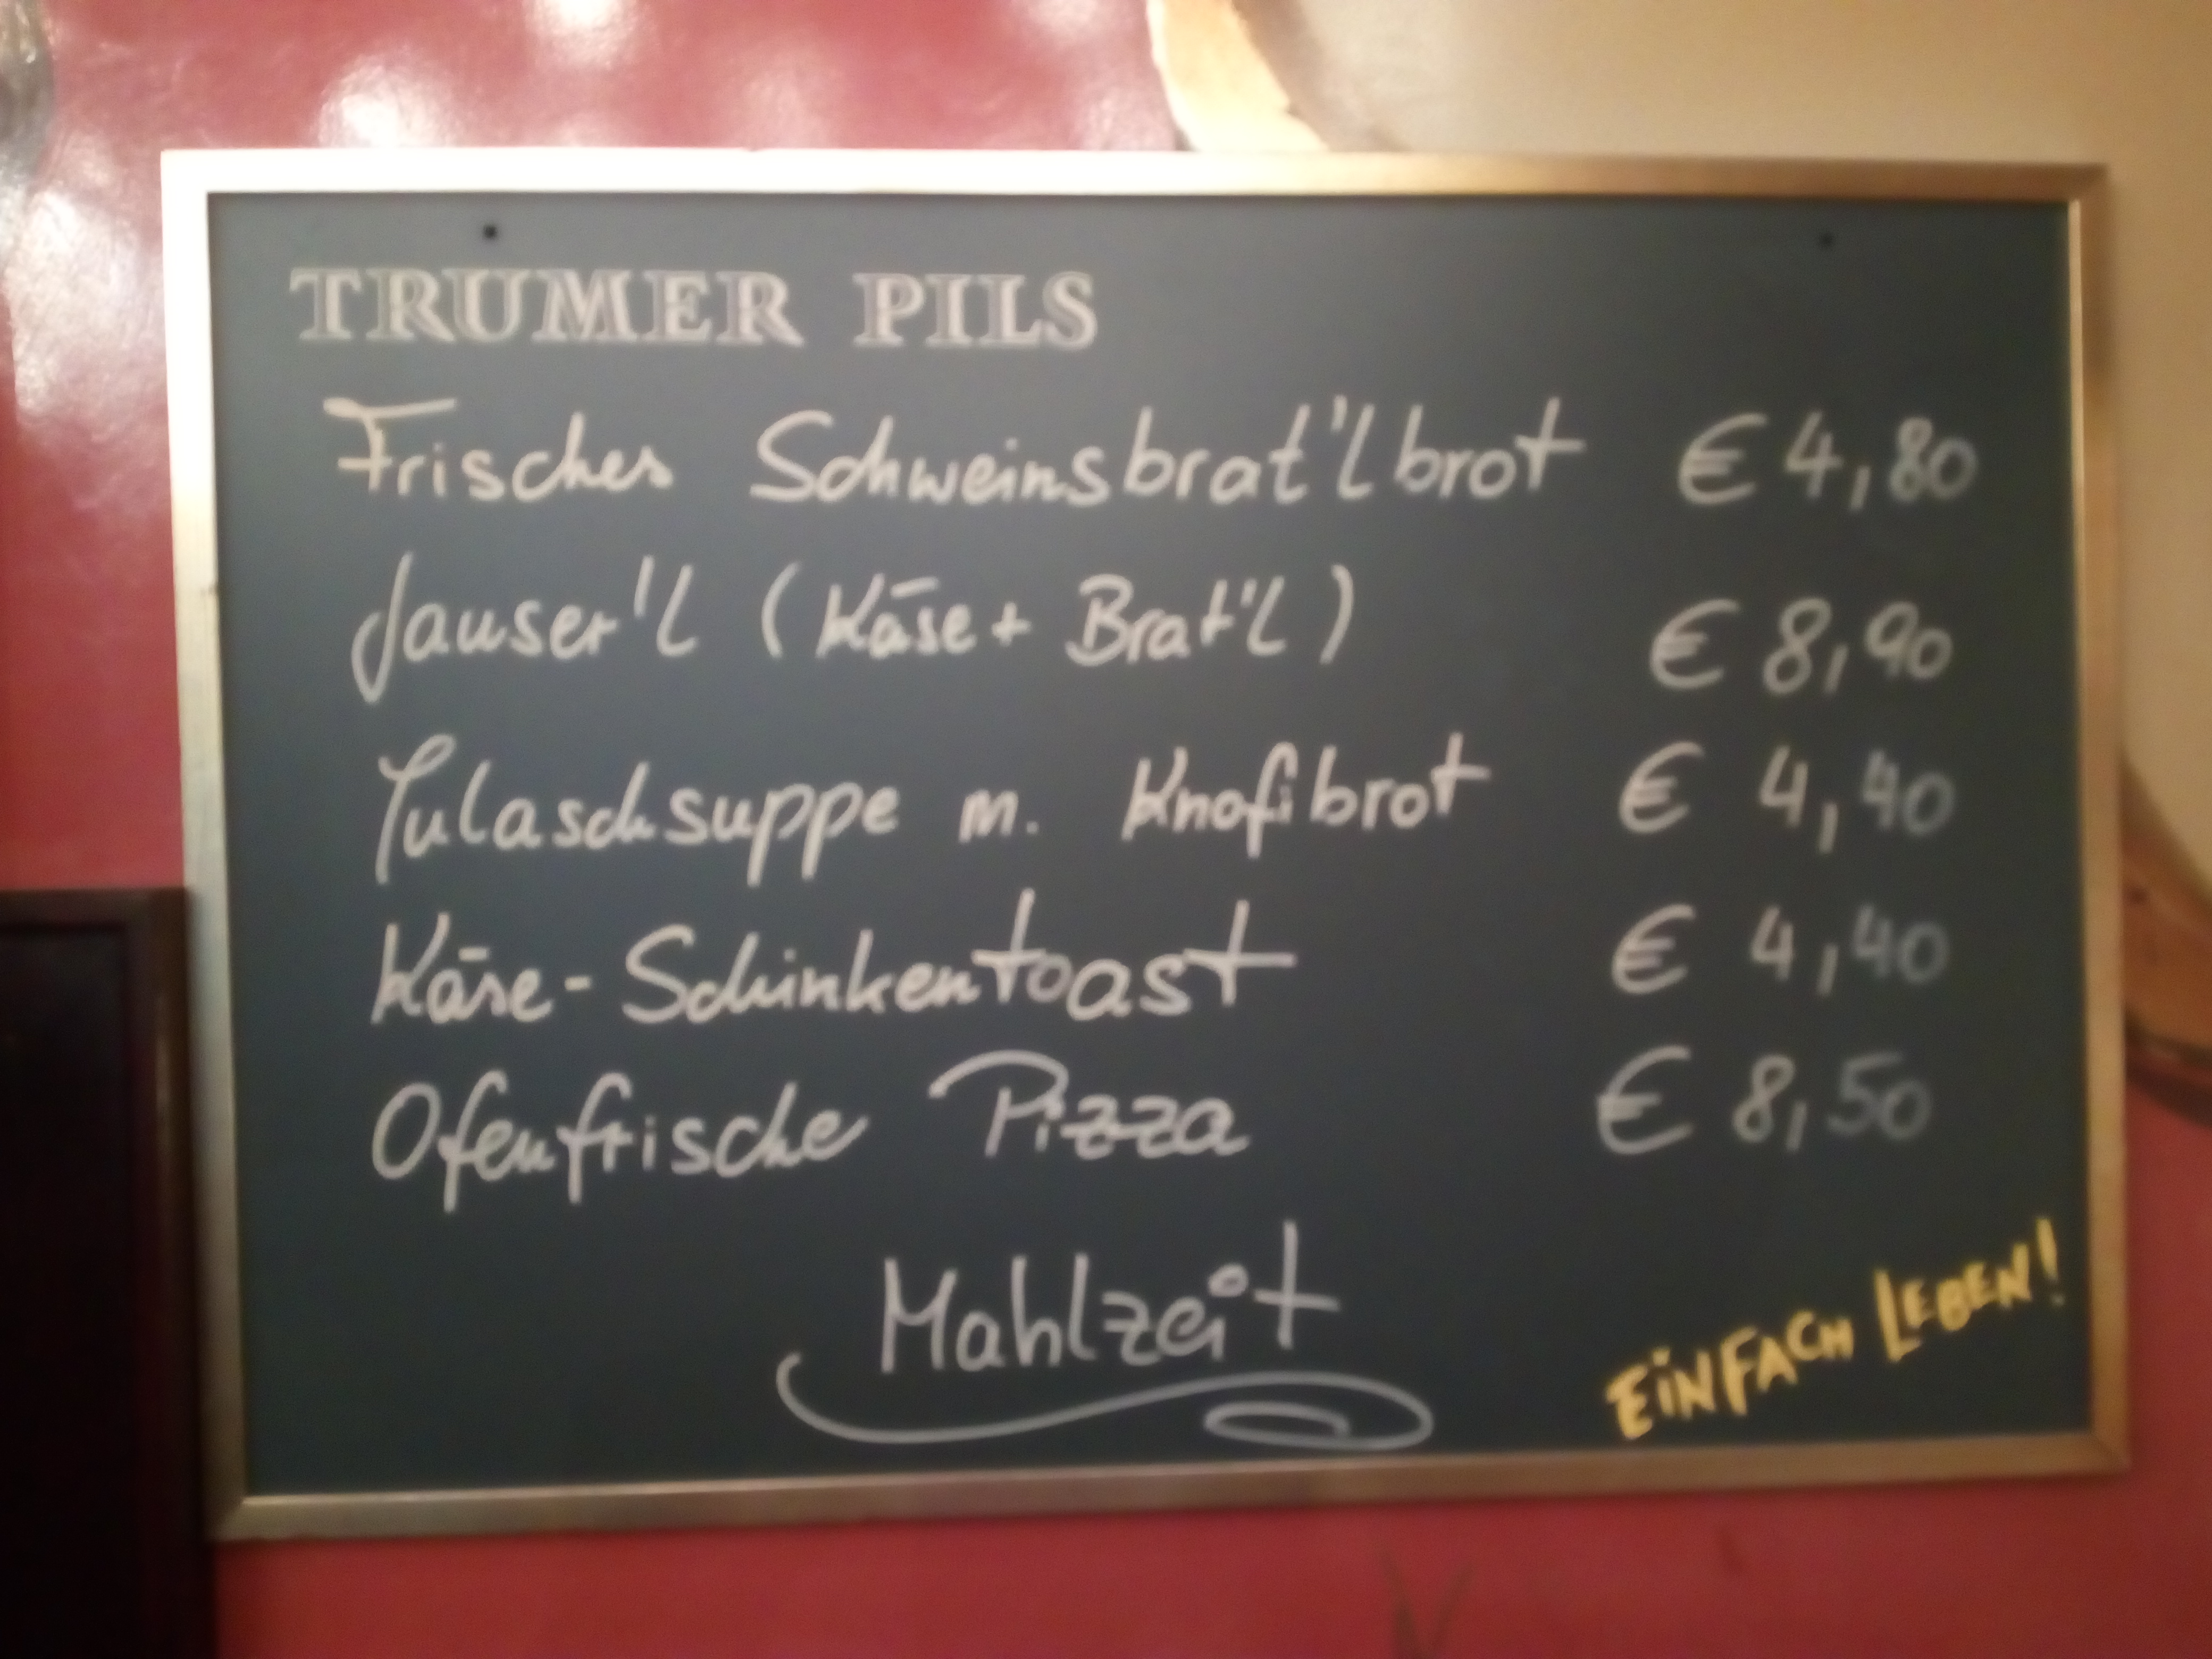 TRUMER PILS
Frisches Schweinsbrat'lbrot € 4,80
Jauser'l (Käse + Brat'l) € 8,90
Gulaschsuppe m. Knofibrot € 4,40
Käse-Schinkentoast € 4,40
Ofenfrische Pizza € 8,50
Mahlzeit
EINFACH LEBEN!